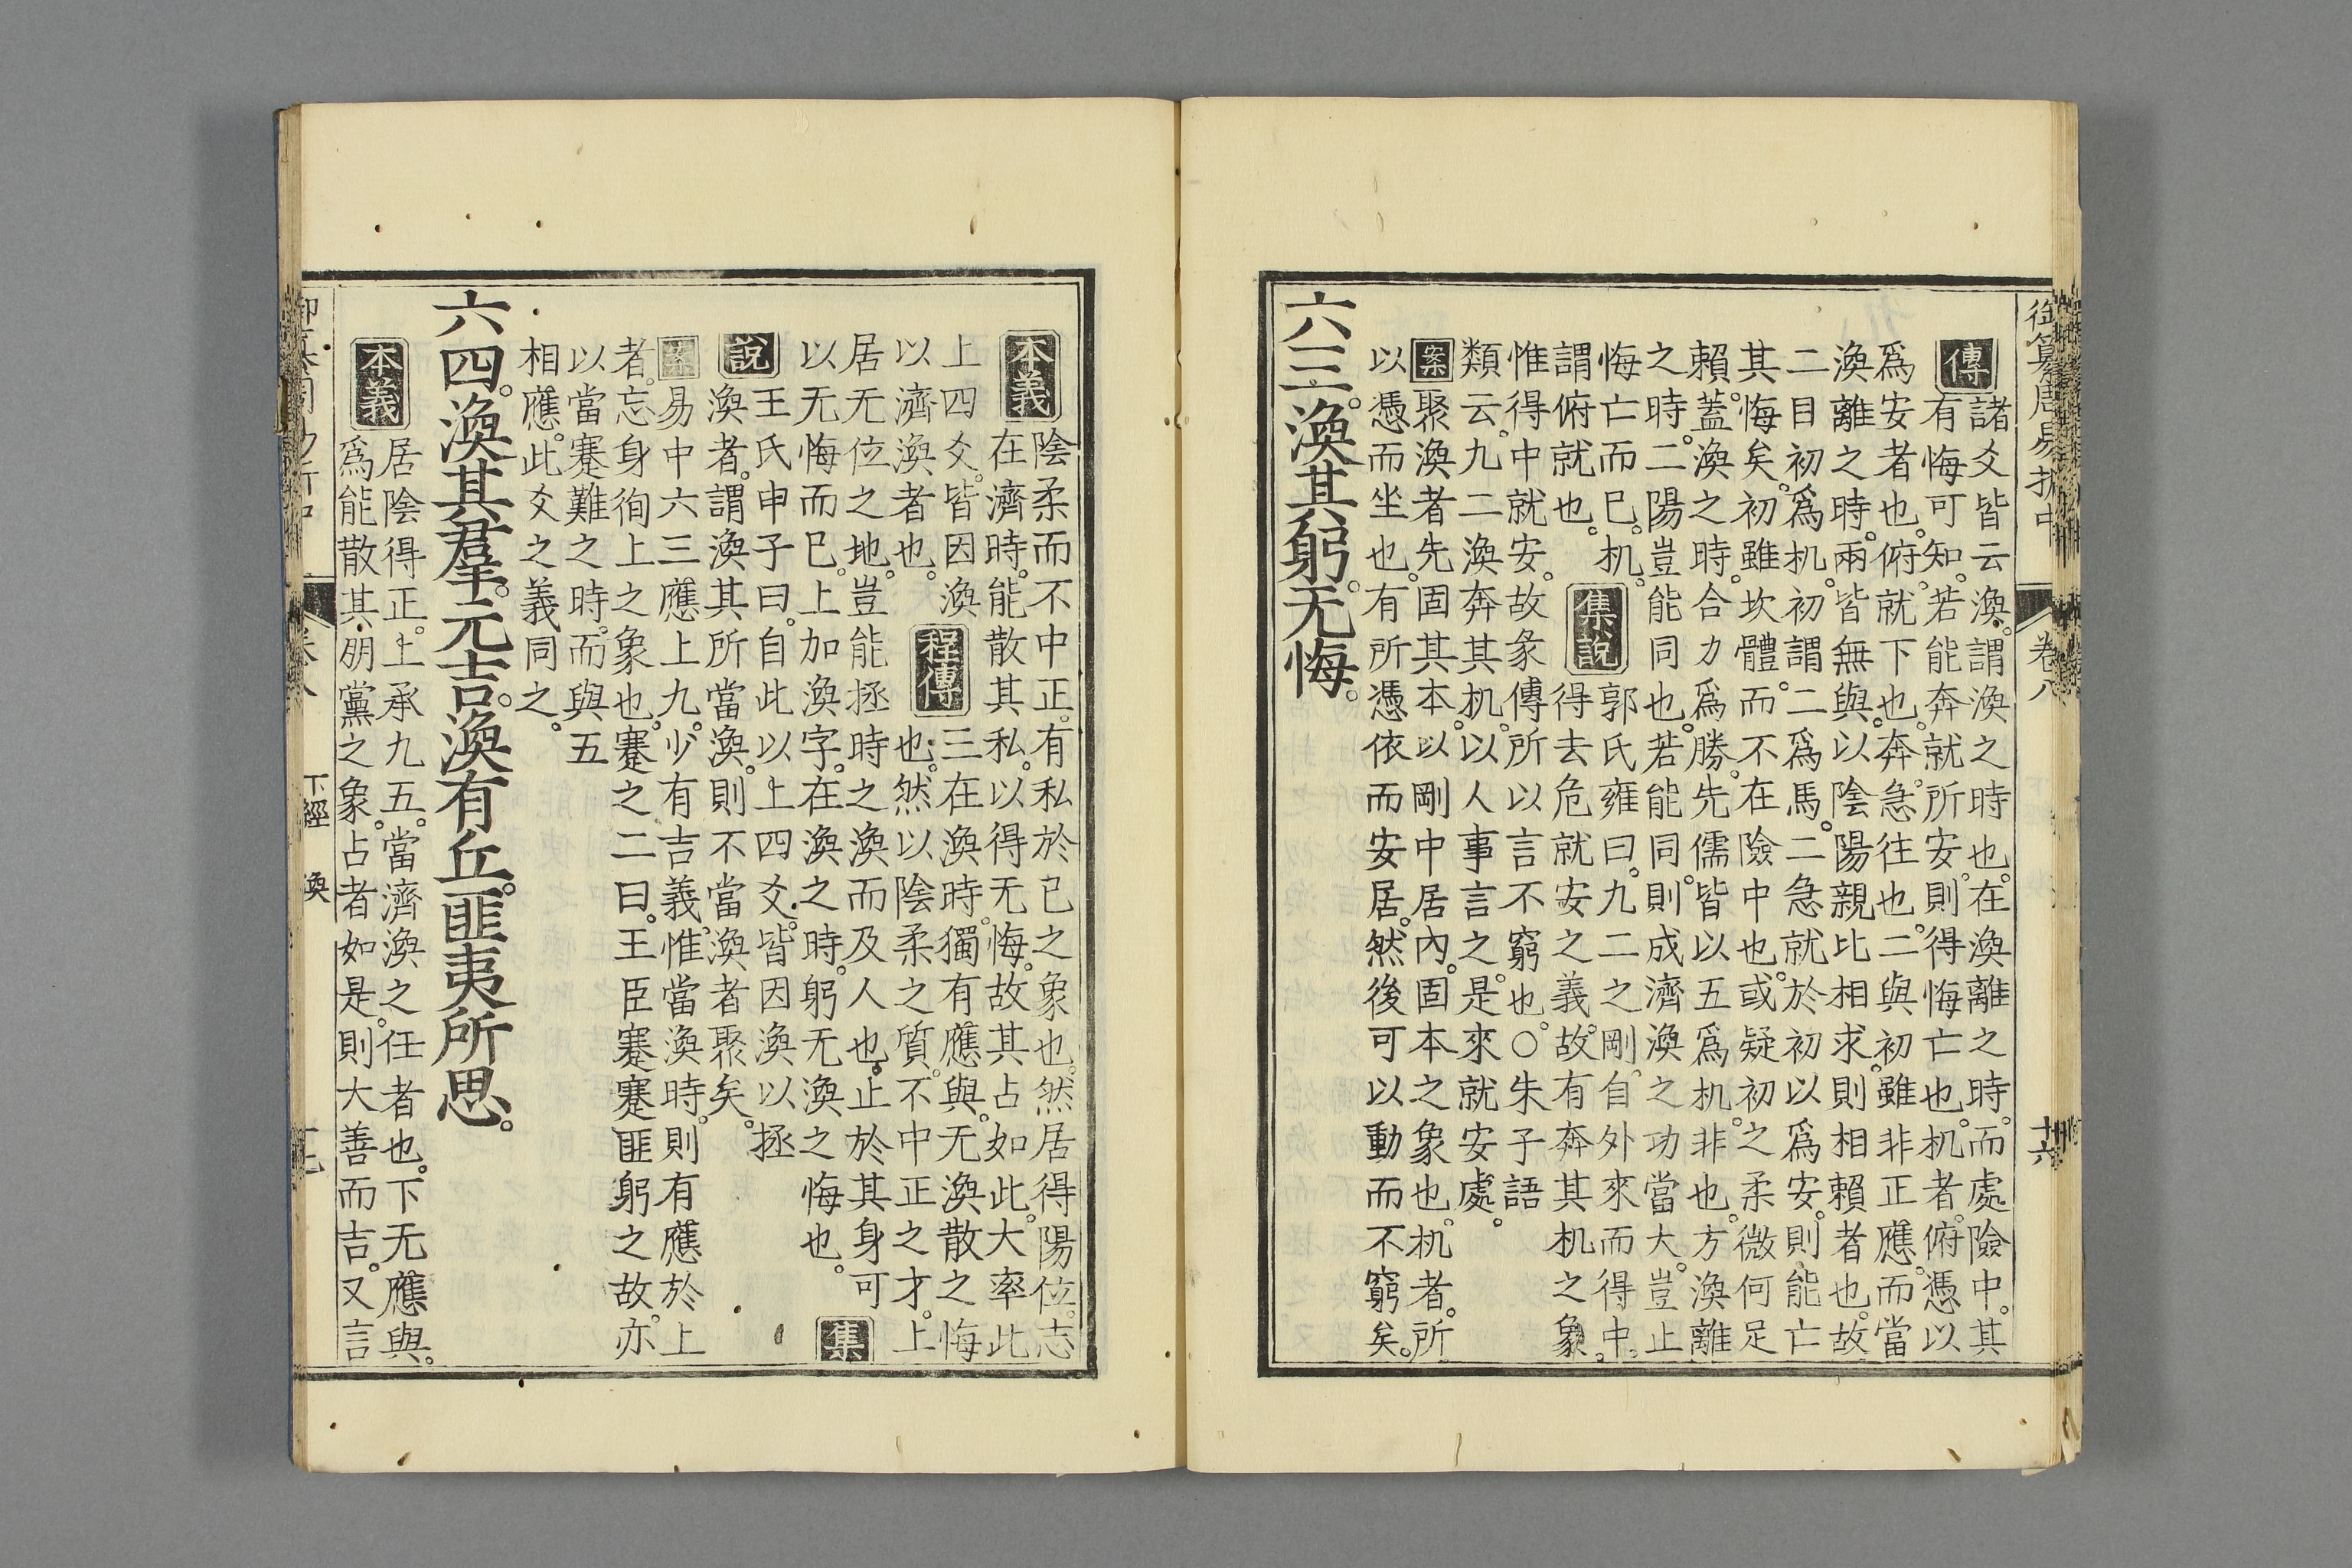 御纂周易折中 卷八 十六
傳 諸爻皆云渙。謂渙之時也。在渙離之時。而處險中。其
有悔可知。若能奔就所安。則得悔亡也。机者。俯憑以
爲安者也。俯。就下也。奔。急往也。二與初。雖非正應。而當
渙離之時。兩皆無與。以陰陽親比相求。則相賴者也。故
二目初爲机。初謂二爲馬。二急就於初以爲安。則能亡
其悔矣。初雖坎體。而不在險中也。或疑初之柔微何足
賴。蓋渙之時。合力爲勝。先儒皆以五爲机。非也。方渙離
之時。二陽豈能同也。若能同。則成濟渙之功當大。豈止
悔亡而巳。机。
謂俯就也。
集說 郭氏雍曰。九二之剛。自外來而得中。
得去危就安之義。故有奔其机之象。
惟得中就安。故彖傳所以言不窮也。○朱子語
類云。九二渙奔其机。以人事言之。是來就安處。
案 聚渙者。先固其本。以剛中居內。固本之象也。机者。所
以憑而坐也。有所憑依而安居。然後可以動而不窮矣。
六三。渙其躬。无悔。
本義 陰柔而不中正。有私於已之象也。然居得陽位。志
在濟時。能散其私。以得无悔。故其占如此。大率此
上四爻。皆因渙
以濟渙者也。
程傳 三在渙時。獨有應與。无渙散之悔
也。然以陰柔之質。不中正之才。上
居无位之地。豈能拯時之渙而及人也。止於其身可
以无悔而巳。上加渙字。在渙之時。躬无渙之悔也。 集
說 王氏申子曰。自此以上四爻。皆因渙以拯
渙者。謂渙其所當渙。則不當渙者聚矣。
案 易中六三應上九。少有吉義。惟當渙時。則有應於上
者。忘身徇上之象也。蹇之二曰。王臣蹇蹇匪躬之故。亦
以當蹇難之時。而與五
相應。此爻之義同之。
六四。渙其羣。元吉。渙有丘。匪夷所思。
本義 居陰得正。上承九五。當濟渙之任者也。下无應與。
爲能散其朋黨之象。占者如是。則大善而吉。又言
下經 渙